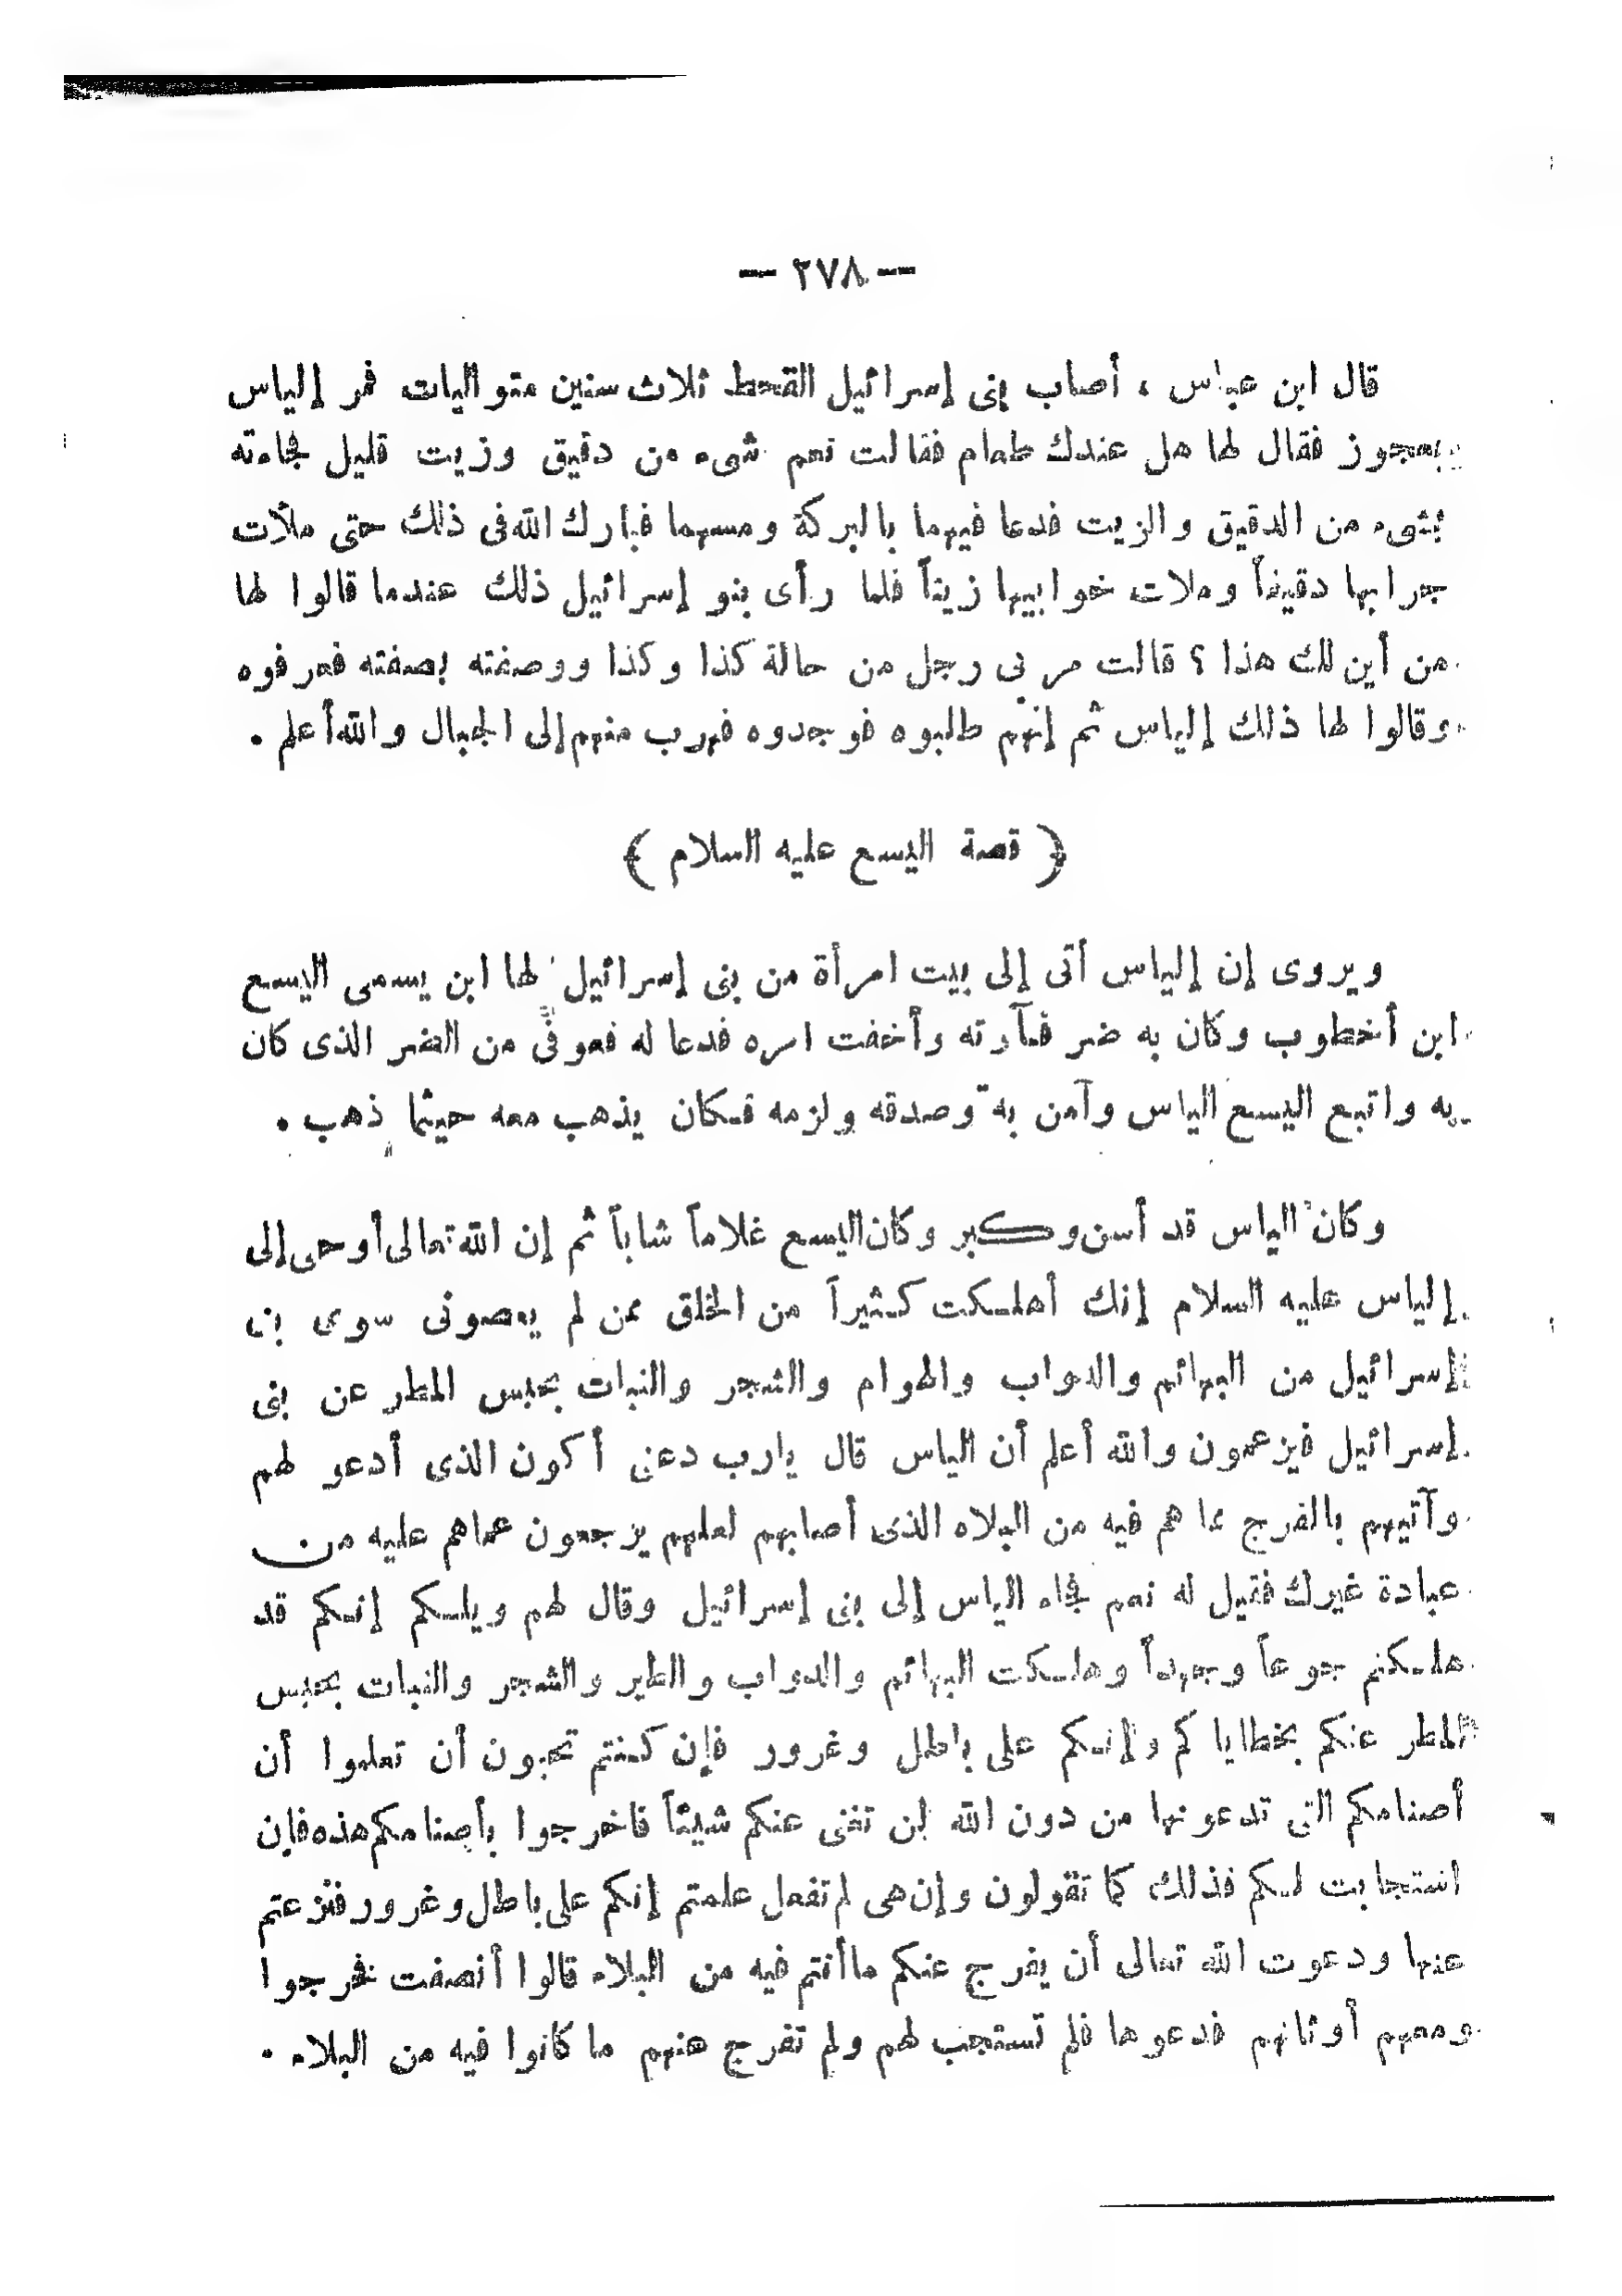 — ٢٧٨ —
قال ابن عباس ، أصاب بنى إسرائيل القحط ثلاث سنين متواليات فمر إلياس
بعجوز فقال لها هل عندك طعام فقالت نعم شىء من دقيق وزيت قليل فجاءته
بشىء من الدقيق والزيت فدعا فيهما بالبركة ومسهما فبارك الله فى ذلك حتى ملأت
جرابها دقيقاً وملات خوابيها زيتاً فلما رأى بنو إسرائيل ذلك عندما قالوا لها
من أين لك هذا ؟ قالت مر بى رجل من حالة كذا وكذا ووصفته بصفته فعرفوه
وقالوا لها ذلك إلياس ثم إنهم طلبوه فوجدوه فهرب منهم إلى الجبال والله أعلم .
﴿ قصة اليسع عليه السلام ﴾
ويروى إن إلياس أتى إلى بيت امرأة من بنى إسرائيل لها ابن يسمى اليسع
ابن أخطوب وكان به ضر فآرته وأخفت امره فدعا له فعوفى من الضر الذى كان
به واتبع اليسع الياس وآمن به وصدقه ولزمه فكان يذهب معه حيثما ذهب .
وكان الياس قد أسن وكبر وكان اليسع غلاماً شاباً ثم إن الله تعالى أوحى إلى
إلياس عليه السلام إنك أهلكت كثيراً من الخلق ممن لم يعصونى سوى بنى
إسرائيل من البهائم والدواب والهوام والشجر والنبات بحبس المطر عن بنى
إسرائيل فيزعمون والله أعلم أن الياس قال يارب دعنى أكون الذى أدعو لهم
وآتيهم بالفرج مما هم فيه من البلاء الذى أصابهم لعلهم يرجعون عماهم عليه من
عبادة غيرك فقيل له نعم فجاء الياس إلى بنى إسرائيل وقال لهم ويلكم إنكم قد
هلكتم جوعاً وجهداً وهلكت البهائم والدواب والطير والشجر والنبات بحبس
المطر عنكم بخطاياكم وإنكم على باطل وغرور فإن كنتم تحبون أن تعلموا أن
أصنامكم التى تدعونها من دون الله لن تغنى عنكم شيئاً فاخرجوا بأصنامكم هذه فإن
استجابت لكم فذلك كما تقولون وإن هى لم تفعل علمتم إنكم على باطل وغرور فنزعتم
عنها ودعوت الله تعالى أن يفرج عنكم ما أنتم فيه من البلاء قالوا أنصفت فخرجوا
ومعهم أوثانهم فدعوها فلم تستجب لهم ولم تفرج عنهم ما كانوا فيه من البلاء .